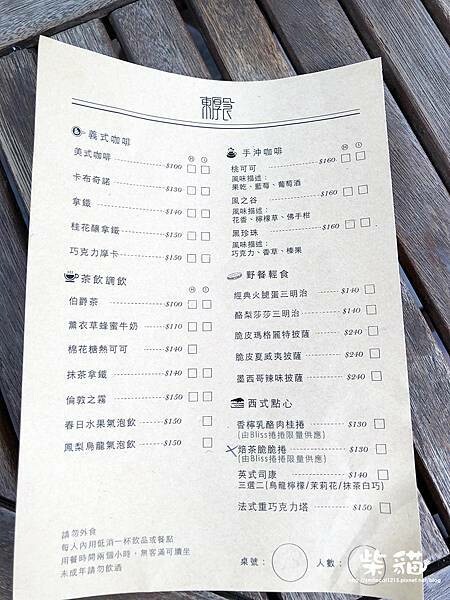 義式咖啡 H I
美式咖啡 $100
卡布奇諾 $130
拿鐵 $140
桂花釀拿鐵 $150
巧克力摩卡 $150
茶飲調飲 H I
伯爵茶 $100
薰衣草蜂蜜牛奶 $110
棉花糖熱可可 $140
抹茶拿鐵 $140
倫敦之霧 $150
春日水果氣泡飲 $150
鳳梨烏龍氣泡飲 $150
請勿外食
每人內用低消一杯飲品或餐點
用餐時間兩個小時，無客滿可續坐
未成年請勿飲酒
手沖咖啡 H I
桃可可 $160
風味描述：
果乾、藍莓、葡萄酒
風之谷 $160
風味描述：
花香、檸檬草、佛手柑
黑珍珠 $160
風味描述：
巧克力、香草、榛果
野餐輕食
經典火腿蛋三明治 $140
酪梨莎莎三明治 $140
脆皮瑪格麗特披薩 $240
脆皮夏威夷披薩 $240
墨西哥辣味披薩 $240
西式點心
香檸乳酪肉桂捲 $130
(由Bliss捲捲限量供應)
焙茶脆脆捲 $130
(由Bliss捲捲限量供應)
英式司康 $140
三選二(烏龍檸檬/茉莉花/抹茶白巧)
法式重巧克力塔 $150
桌號： 人數：
柴貓